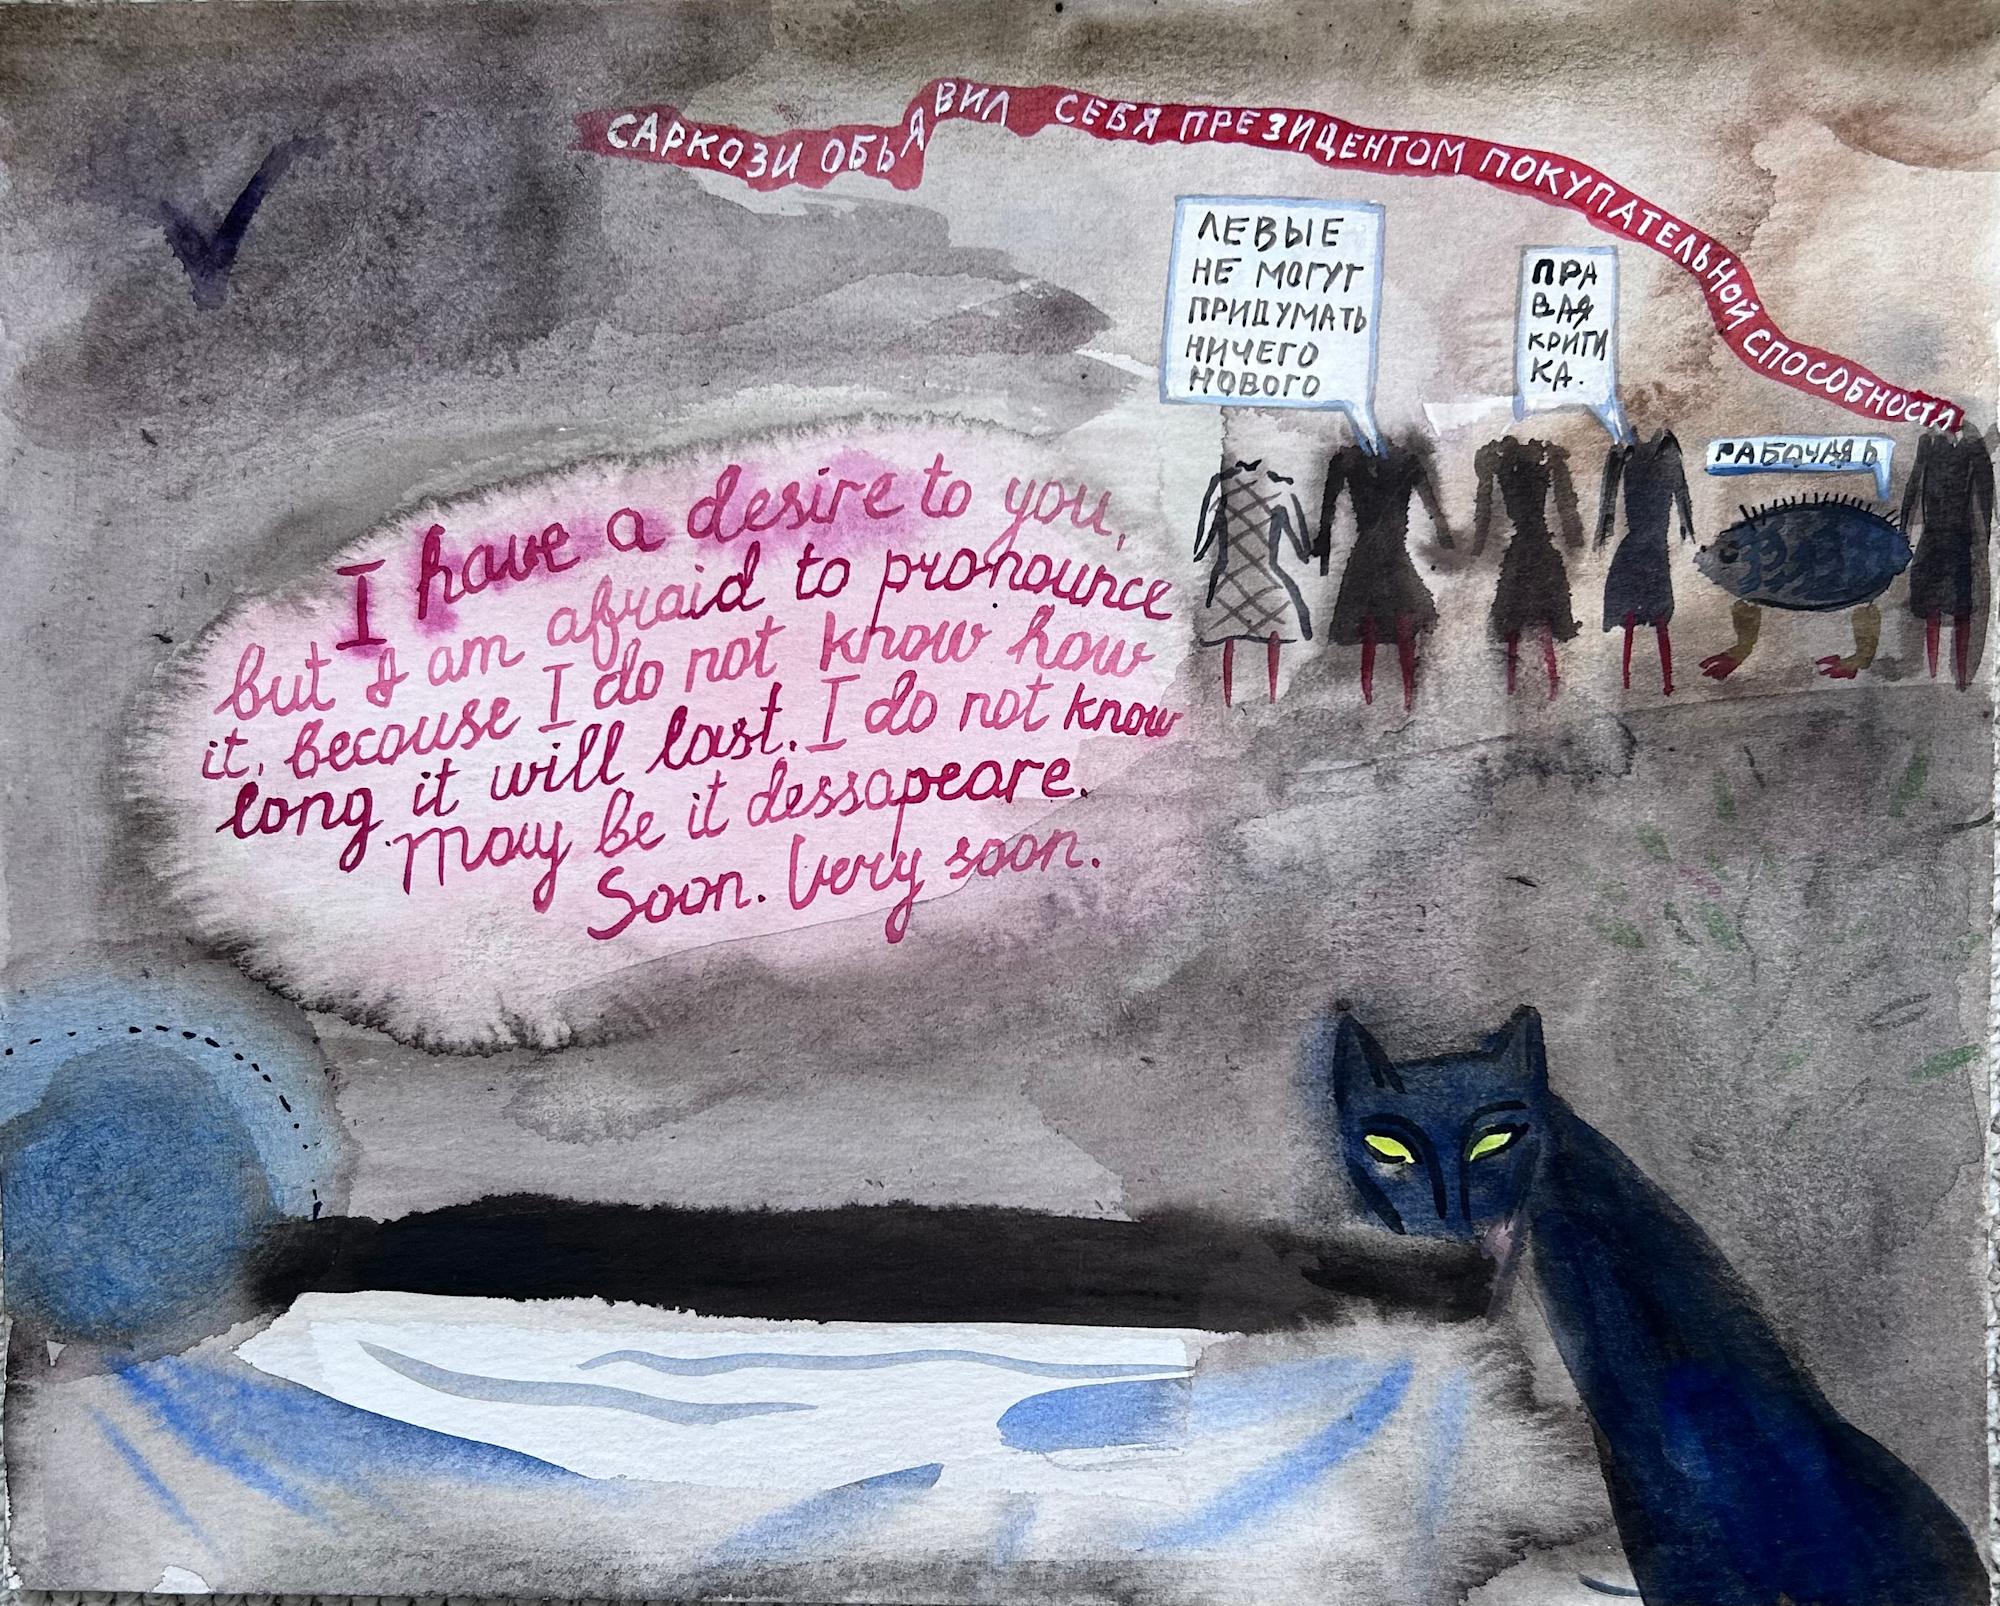 САРКОЗИ ОБЬЯВИЛ СЕБЯ ПРЕЗИЦЕНТОМ ПОКУПАТЕЛЬНОЙ СПОСОБНОСТИ
ЛЕВЫЕ
НЕ МОГУТ
ПРИДУМАТЬ
НИЧЕГО
НОВОГО
ПРА
ВАЯ
КРИТИ
КА.
РАБОЧАЯ Ь
I have a desire to you,
but I am afraid to pronounce
it, because I do not know how
long it will last. I do not know
May be it dessapeare.
Soon. Very soon.